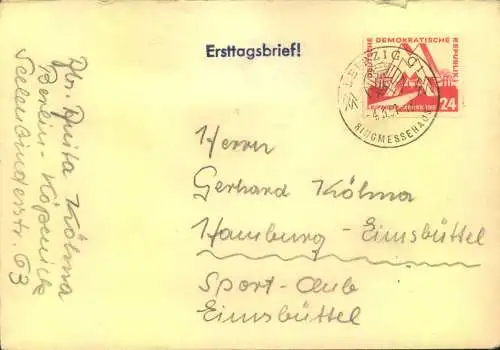 Ersttagsbrief!
DEUTSCHE DEMOKRATISCHE REPUBLIK
24
LEIPZIG C1
RINGMESSEHAUS
Herrn
Gerhard Kölma
Hamburg - Eimsbüttel
Sport-Club
Eimsbüttel
Abs. Anita Kölma
Berlin-Köpenick
Seelenbinderstr. 63